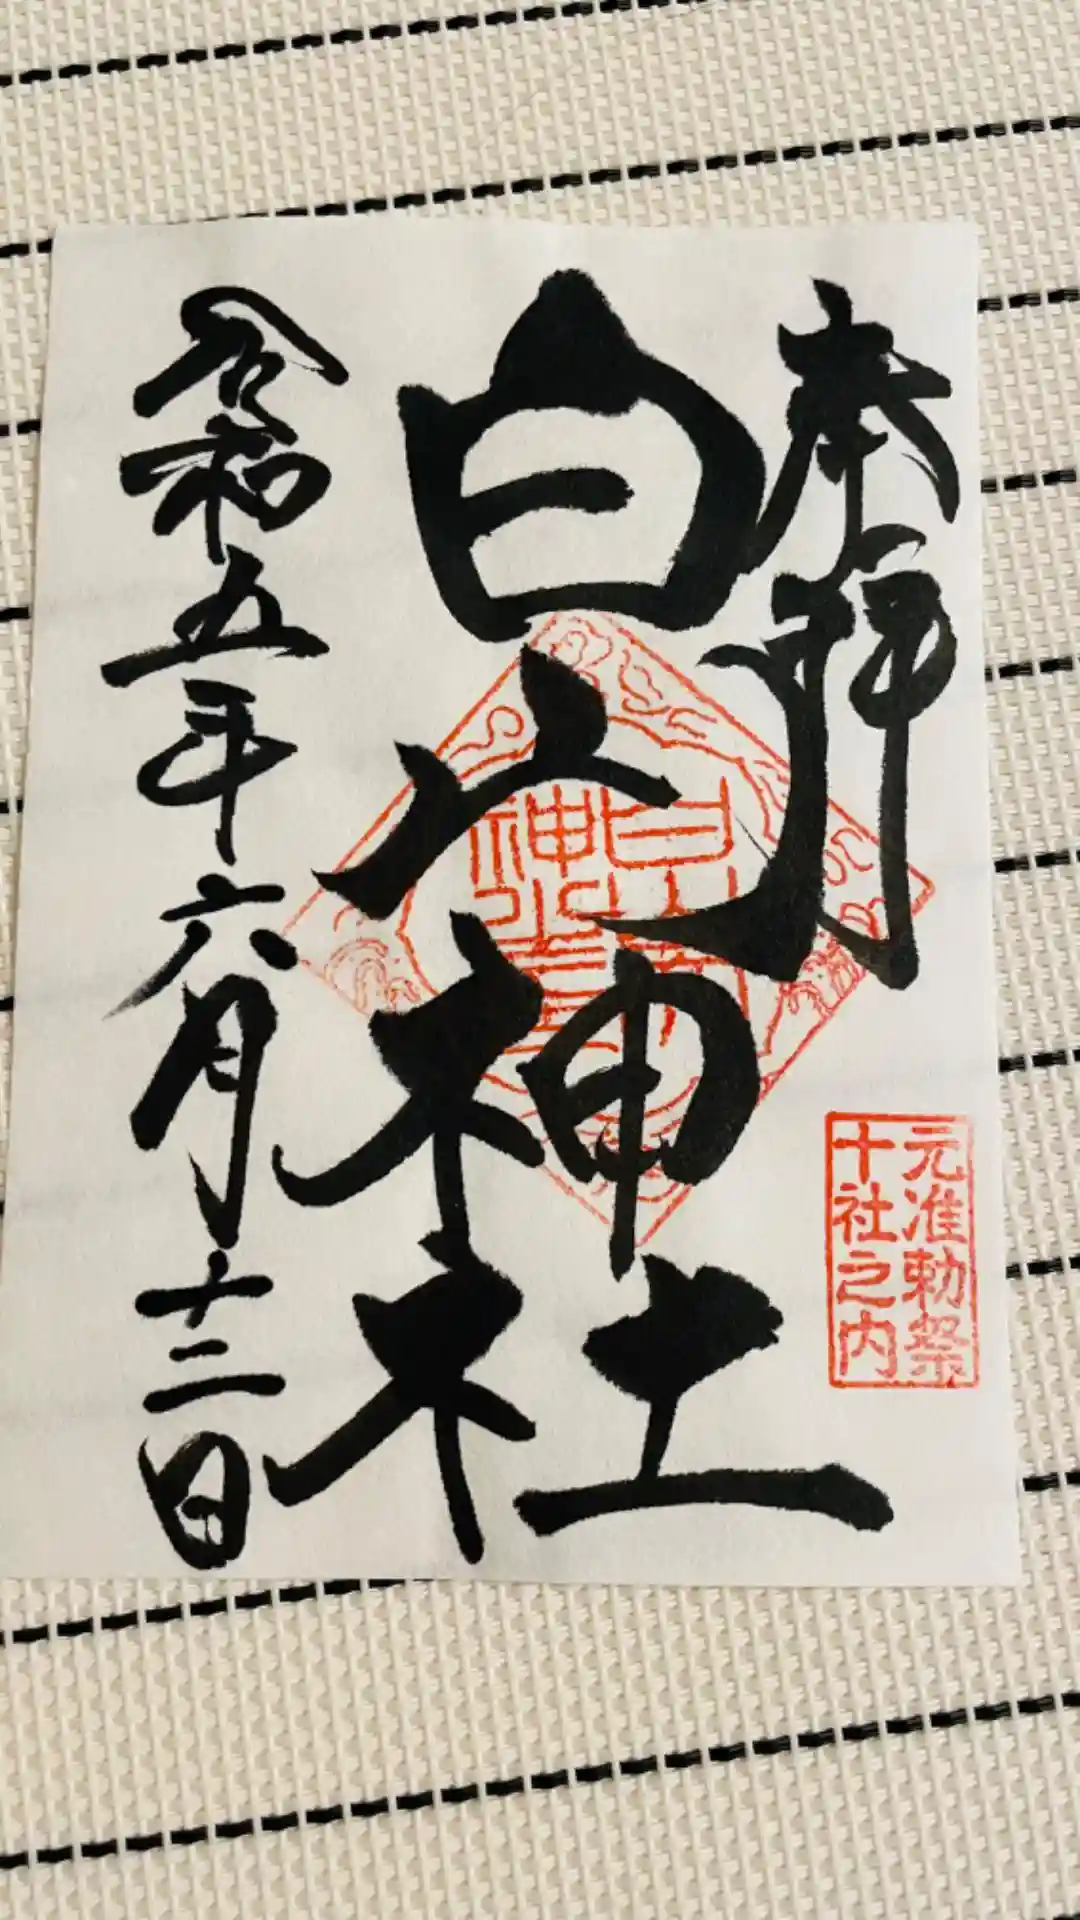 奉拝
元准勅祭
十社之内
白山神社
令和五年六月十二日